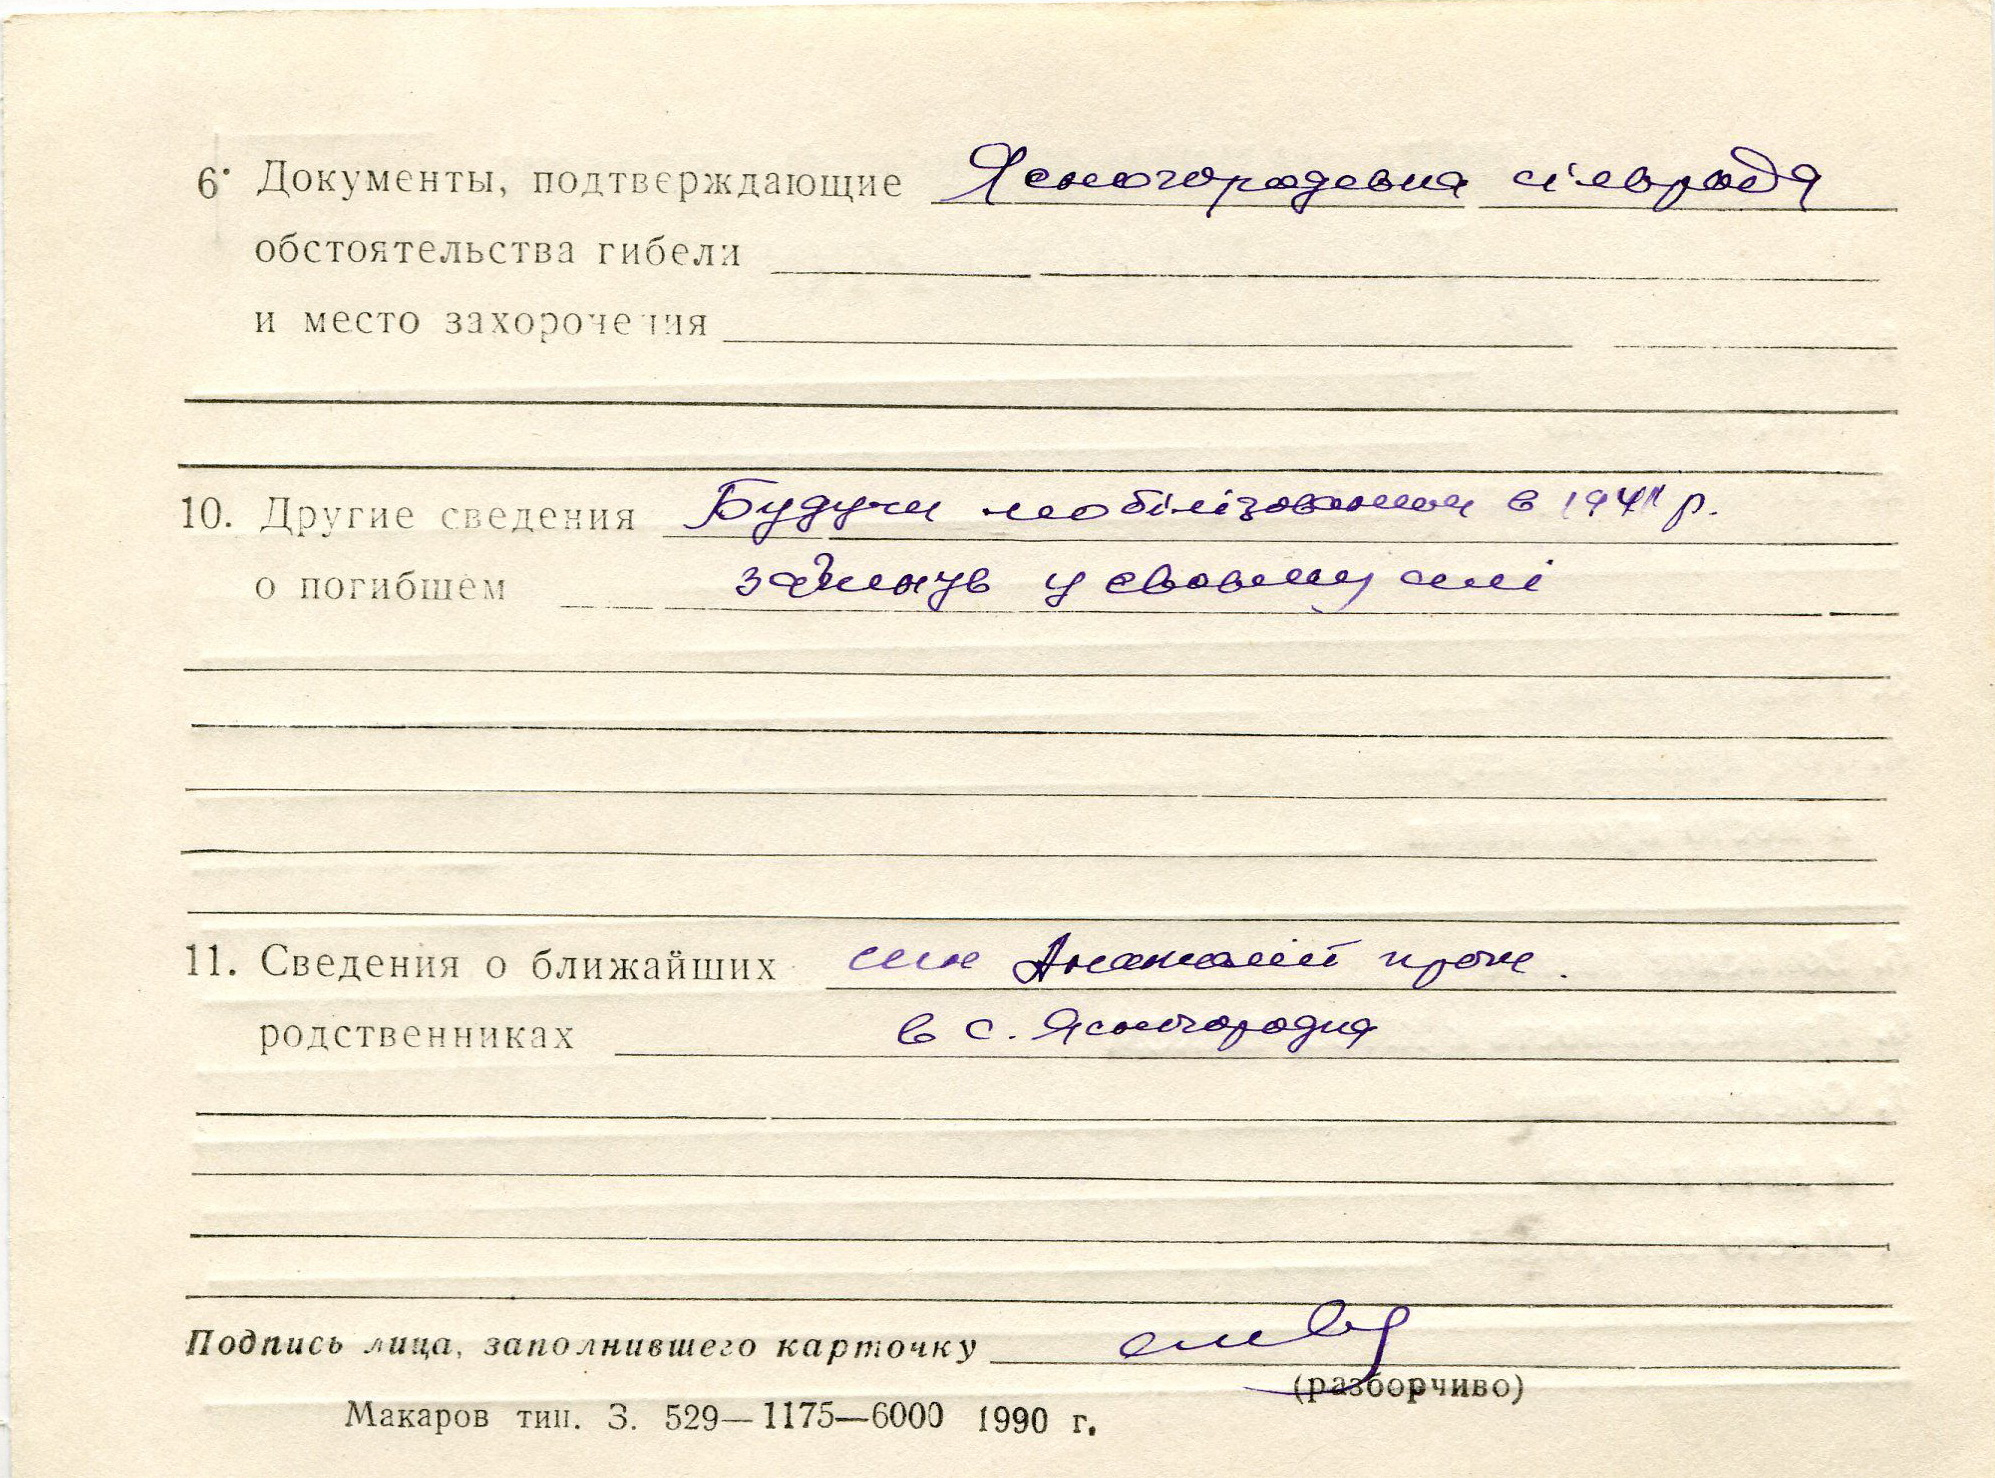 6. Документы, подтверждающие Ясногородська сільрада
обстоятельства гибели
и место захоронения
10. Другие сведения Будучи мобілізованим в 1941 р.
о погибшем загинув у своєму селі
11. Сведения о ближайших син Анатолій прож.
родственниках в с. Ясногородка
Подпись лица, заполнившего карточку
(разборчиво)
Макаров тип. З. 529—1175—6000 1990 г.